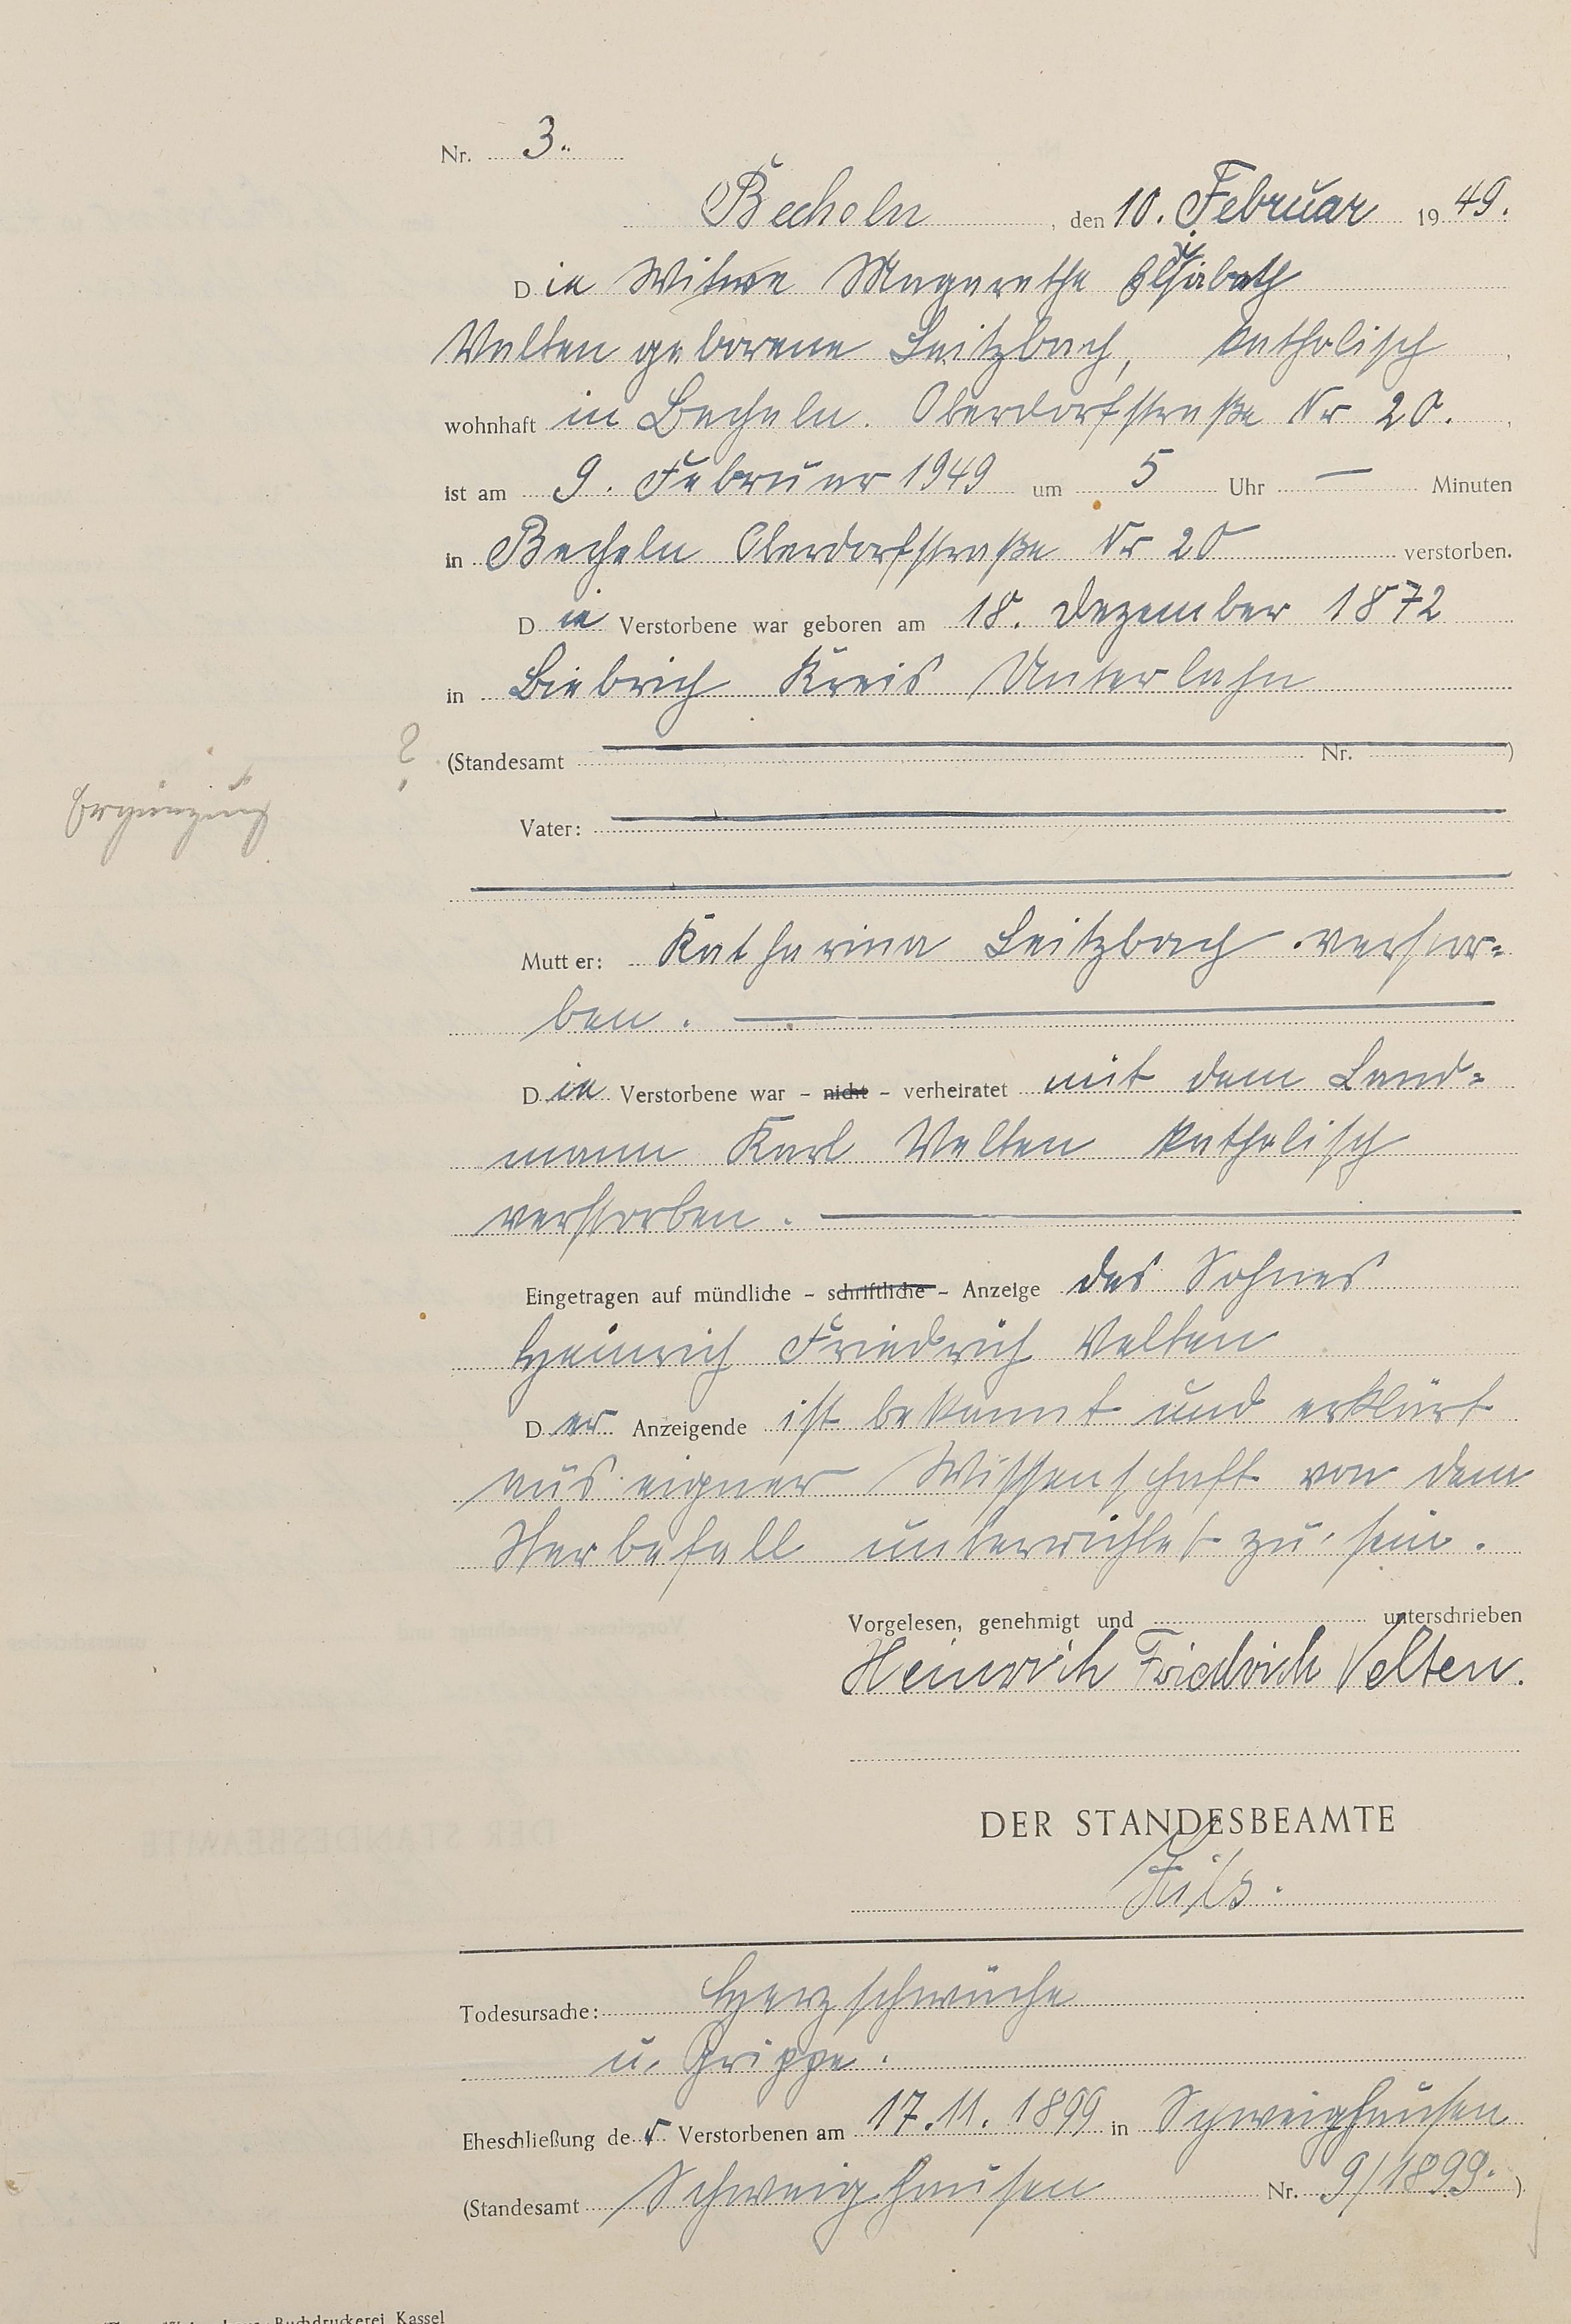 Nr. 3.
Becheln, den 10. Februar 1949.
Die Witwe Magarethe Elisabeth
Velten geborene Leitzbach, katholisch,
wohnhaft in Becheln. Oberdorfstraße Nr 20.,
ist am 9. Februar 1949 um 5 Uhr — Minuten
in Becheln Oberdorfstraße Nr 20 verstorben.
Die Verstorbene war geboren am 18. Dezember 1872
in Biebrich Kreis Unterlahn
? (Standesamt Nr. )
Ergänzung
Vater:
Mutter: Katharina Leitzbach verstor=
ben.
Die Verstorbene war – nicht – verheiratet mit dem Land=
mann Karl Velten katholisch
verstorben.
Eingetragen auf mündliche – schriftliche – Anzeige des Sohnes
Heinrich Friedrich Velten
Der Anzeigende ist bekannt und erklärt
aus eigner Wissenschaft von dem
Sterbefall unterrichtet zu sein.
Vorgelesen, genehmigt und unterschrieben
Heinrich Friedrich Velten.
DER STANDESBEAMTE
Todesursache: Herzschwäche
u. Grippe.
Eheschließung der Verstorbenen am 17.11.1899 in Schweighausen
(Standesamt Schweighausen Nr. 9/1899.)
Buchdruckerei Kassel